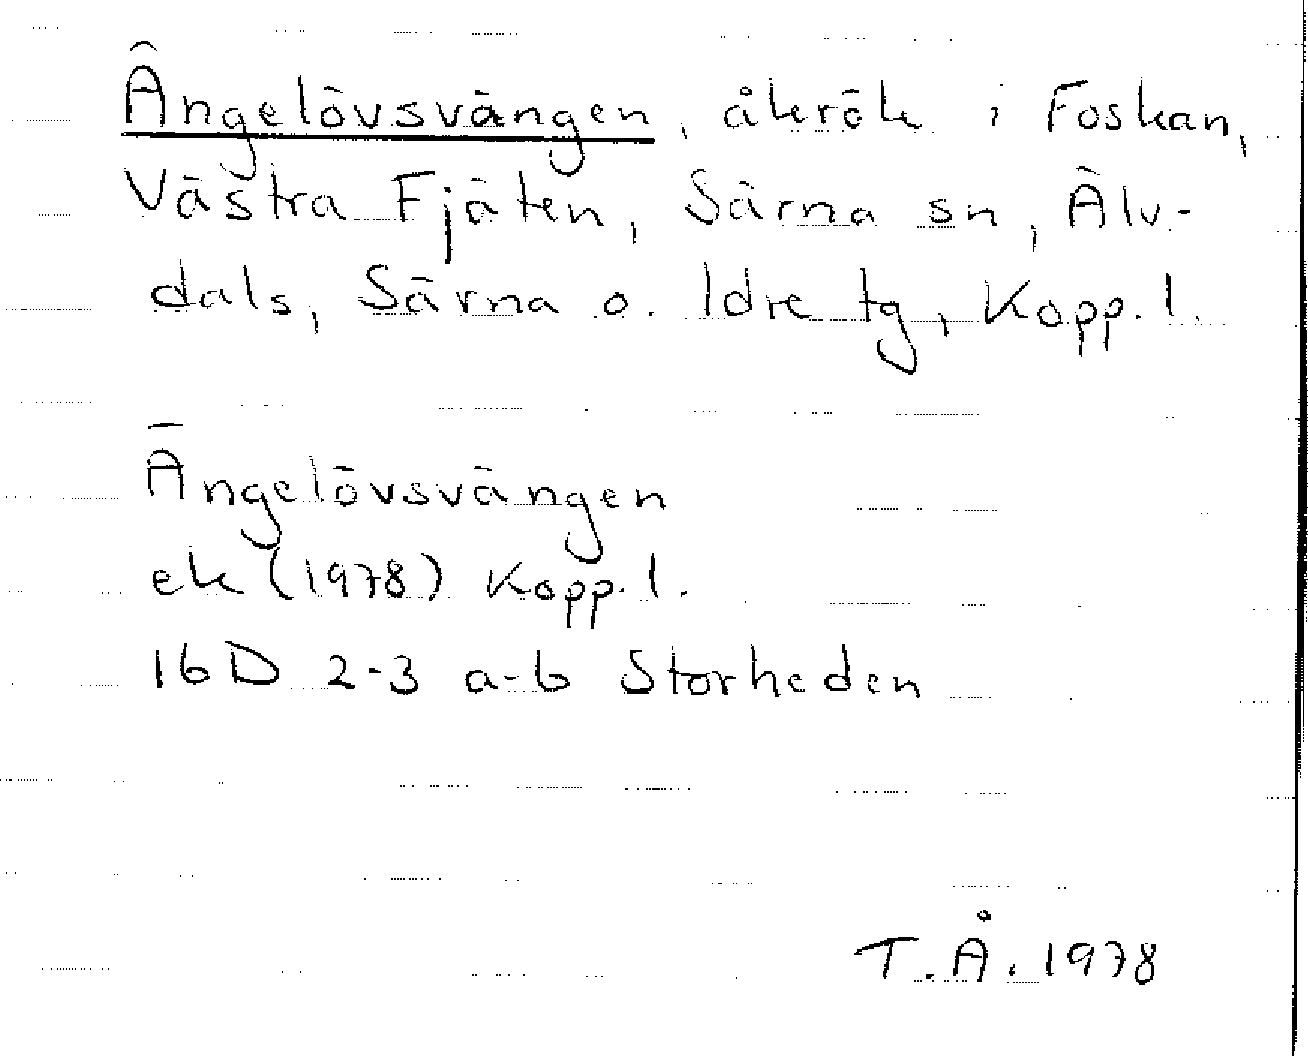 Ängelövsvängen, åkrök i Foskan,
Västra Fjäten, Särna sn, Älv-
dals, Särna o. Idre tg, Kopp. l.
Ängelövsvängen
ek (1978) Kopp. l.
16D 2-3 a-b Storheden
T.Å. 1978